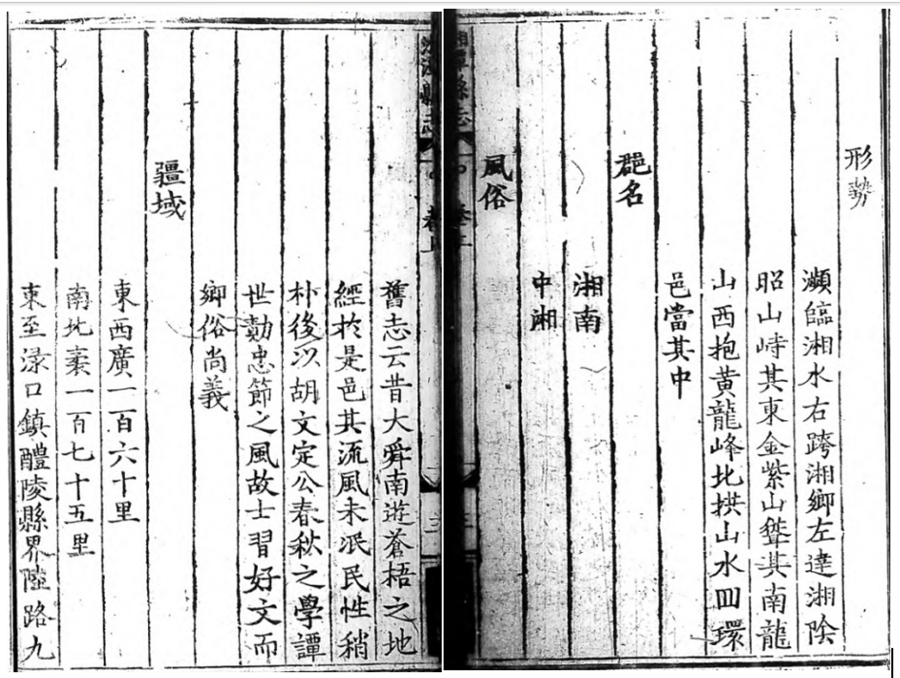 形勢
瀕臨湘水右跨湘鄉左達湘陰
昭山峙其東金紫山聳其南龍
山西抱黃龍峰北拱山水回環
邑當其中
郡名
湘南
中湘
風俗
湘潭縣志
卷上
舊志云昔大舜南遊蒼梧之地
經於是邑其流風未泯民性稍
朴後以胡文定公春秋之學譚
世勣忠節之風故士習好文而
鄉俗尚義
疆域
東西廣一百六十里
南北袤一百七十五里
東至淥口鎮醴陵縣界陸路九